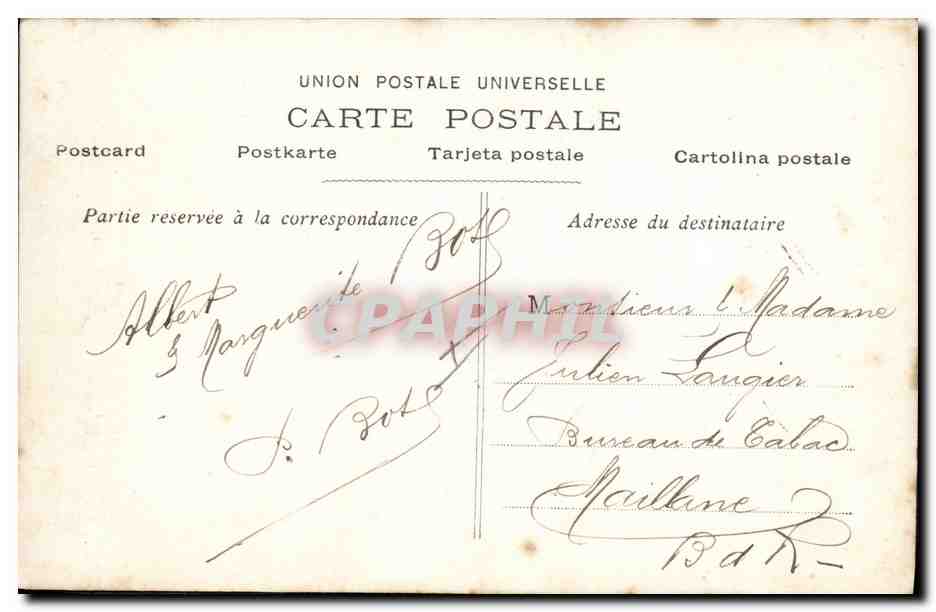 UNION POSTALE UNIVERSELLE
CARTE POSTALE
Postcard Postkarte Tarjeta postale Cartolina postale
Partie réservée à la correspondance
Adresse du destinataire
Albert
& Marguerite Bosc
P. Bosc
CPAPHIL
Monsieur & Madame
Julien Laugier
Bureau de Tabac
Maillane
B d R